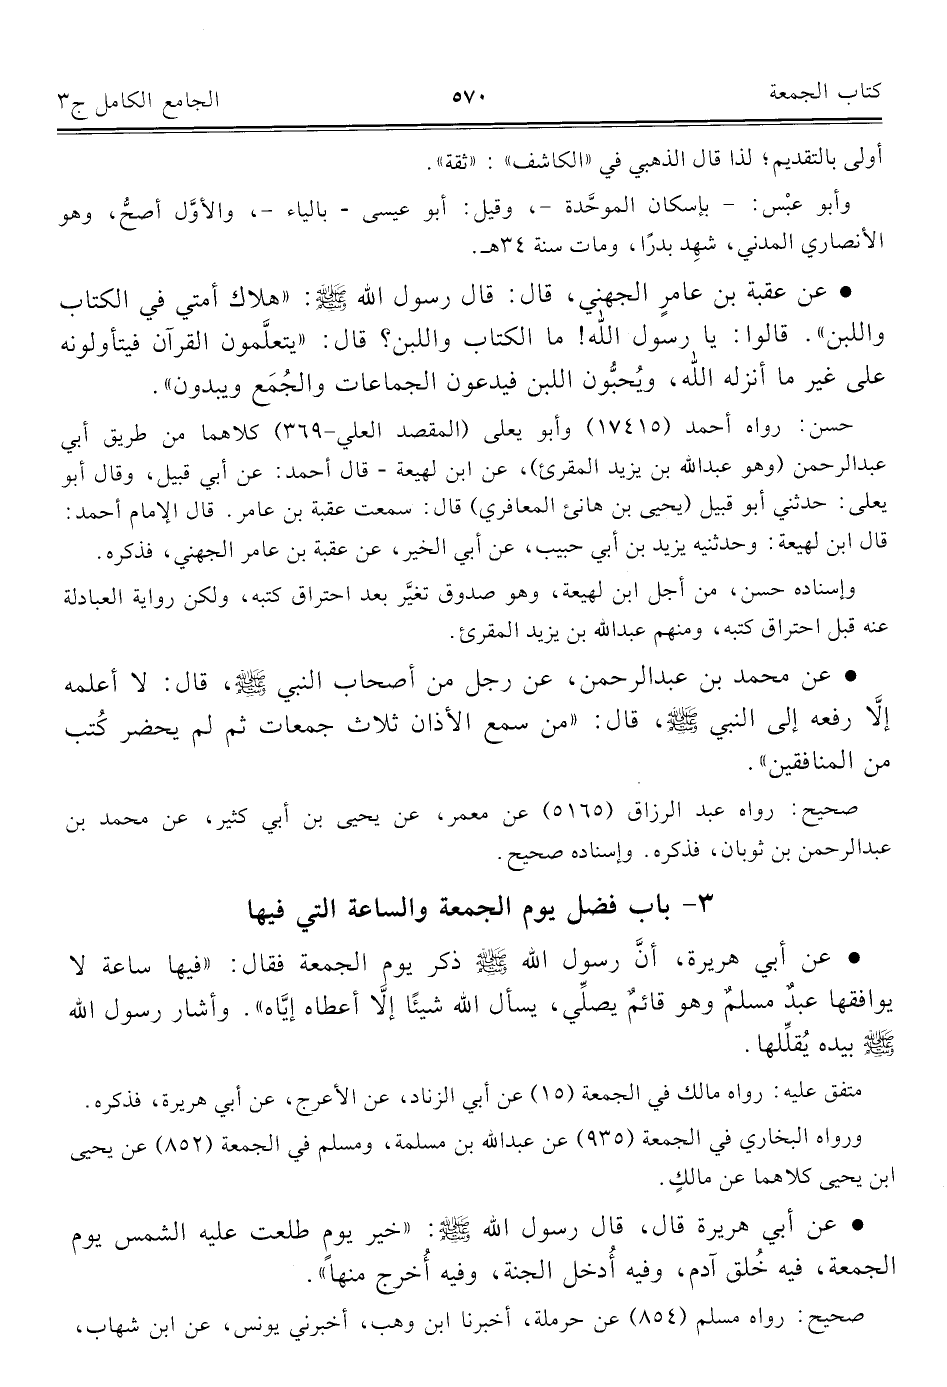 كتاب الجمعة ٥٧٠ الجامع الكامل ج٣
أولى بالتقديم؛ لذا قال الذهبي في «الكاشف» : «ثقة».
وأبو عبْس: - بإسكان الموحَّدة -، وقيل: أبو عيسى - بالياء -، والأوَّل أصحُّ، وهو
الأنصاري المدني، شهِد بدرًا، ومات سنة ٣٤هـ.
• عن عقبة بن عامرٍ الجهني، قال: قال رسول الله ﷺ: «هلاك أمتي في الكتاب
واللبن». قالوا: يا رسول الله! ما الكتاب واللبن؟ قال: «يتعلَّمون القرآن فيتأولونه
على غير ما أنزله الله، ويُحبُّون اللبن فيدعون الجماعات والجُمَع ويبدون».
حسن: رواه أحمد (١٧٤١٥) وأبو يعلى (المقصد العلي-٣٦٩) كلاهما من طريق أبي
عبدالرحمن (وهو عبدالله بن يزيد المقرئ)، عن ابن لهيعة - قال أحمد: عن أبي قبيل، وقال أبو
يعلى: حدثني أبو قبيل (يحيى بن هانئ المعافري) قال: سمعت عقبة بن عامر. قال الإمام أحمد:
قال ابن لهيعة: وحدثنيه يزيد بن أبي حبيب، عن أبي الخير، عن عقبة بن عامر الجهني، فذكره.
وإسناده حسن، من أجل ابن لهيعة، وهو صدوق تغيَّر بعد احتراق كتبه، ولكن رواية العبادلة
عنه قبل احتراق كتبه، ومنهم عبدالله بن يزيد المقرئ.
• عن محمد بن عبدالرحمن، عن رجل من أصحاب النبي ﷺ، قال: لا أعلمه
إلَّا رفعه إلى النبي ﷺ، قال: «من سمع الأذان ثلاث جمعات ثم لم يحضر كُتب
من المنافقين».
صحيح: رواه عبد الرزاق (٥١٦٥) عن معمر، عن يحيى بن أبي كثير، عن محمد بن
عبدالرحمن بن ثوبان، فذكره. وإسناده صحيح.
٣- باب فضل يوم الجمعة والساعة التي فيها
• عن أبي هريرة، أنَّ رسول الله ﷺ ذكر يوم الجمعة فقال: «فيها ساعة لا
يوافقها عبدٌ مسلمٌ وهو قائمٌ يصلِّي، يسأل الله شيئًا إلَّا أعطاه إيَّاه». وأشار رسول الله
ﷺ بيده يُقلِّلها.
متفق عليه: رواه مالك في الجمعة (١٥) عن أبي الزناد، عن الأعرج، عن أبي هريرة، فذكره.
ورواه البخاري في الجمعة (٩٣٥) عن عبدالله بن مسلمة، ومسلم في الجمعة (٨٥٢) عن يحيى
ابن يحيى كلاهما عن مالكٍ.
• عن أبي هريرة قال، قال رسول الله ﷺ: «خير يوم طلعت عليه الشمس يوم
الجمعة، فيه خُلق آدم، وفيه أُدخل الجنة، وفيه أُخرج منهاً».
صحيح: رواه مسلم (٨٥٤) عن حرملة، أخبرنا ابن وهب، أخبرني يونس، عن ابن شهاب،